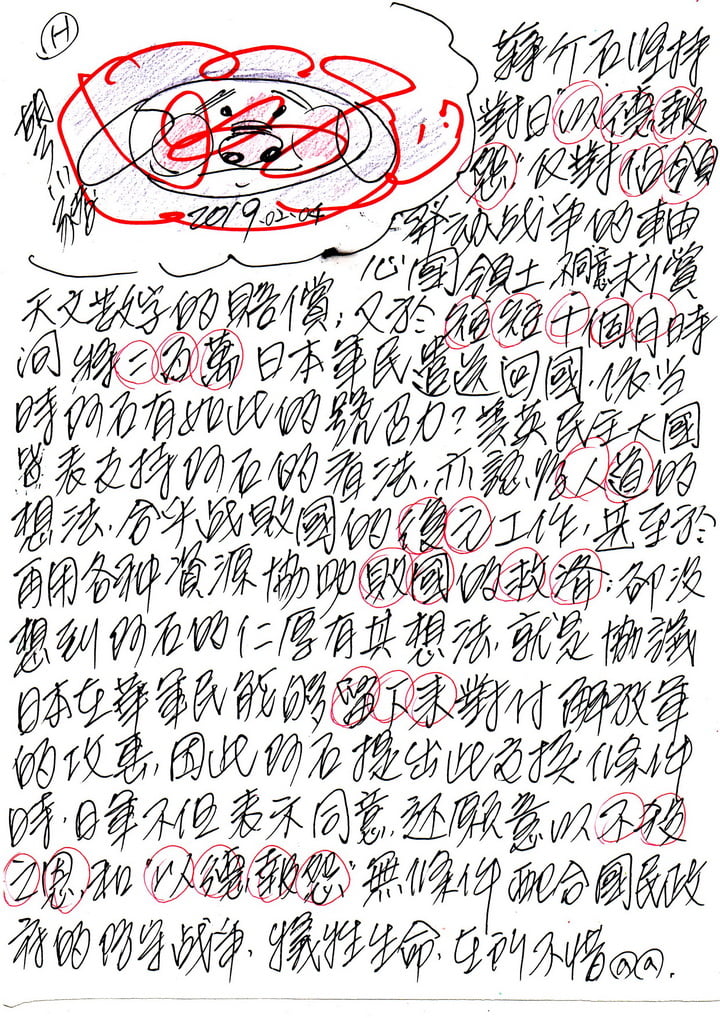 H
2019.02.04
蔣介石堅持
對日"以德報
怨"仅對佔領
發动战争的
心國領土 要求償
天文數字的賠償;又於短短十個月時
间將二百萬日本軍民遣送回國,依当
時阿石有如此的號召力?美英民主大國
皆表支持阿石的看法,亦認為人道的
想法,合乎战敗國的復元工作,甚至於
再用各种資源協助敗國的救濟;卻没
想到阿石的仁厚有其想法,就是協議
日本在華軍民能够留下來對付解放軍
的攻擊,因此阿石提出此交換條件
時,日軍不但表示同意,还願意以不殺
之恩和"以德報怨"無條件配合國民政
府的防守战争,犧牲生命,在所不惜